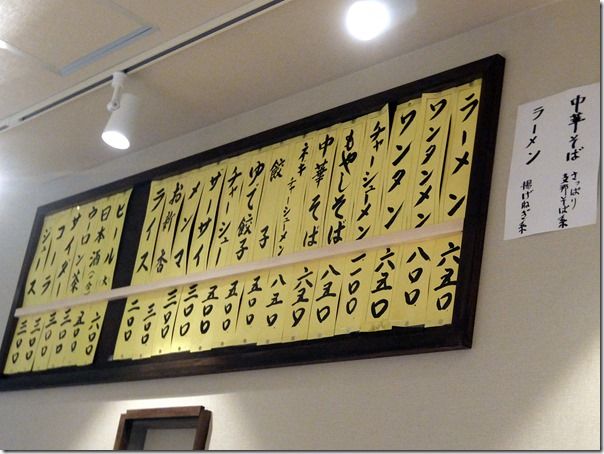 中華そば さっぱり 支那そば系
ラーメン 揚げねぎ系
ラーメン 六五〇
ワンタンメン 八〇〇
ワンタン 六五〇
チャーシューメン
もやしそば 八五〇
中華そば 六五〇
ネギチャーシューメン 八五〇
餃子
ゆで餃子
チャーシュー 五〇〇
ザーサイ 三〇〇
メンマ 三〇〇
お新香 三〇〇
ライス 二〇〇
ビール大 六〇〇
日本酒(一合) 五〇〇
ウーロン茶 三〇〇
サイダー 三〇〇
コーラ 三〇〇
ジュース 三〇〇